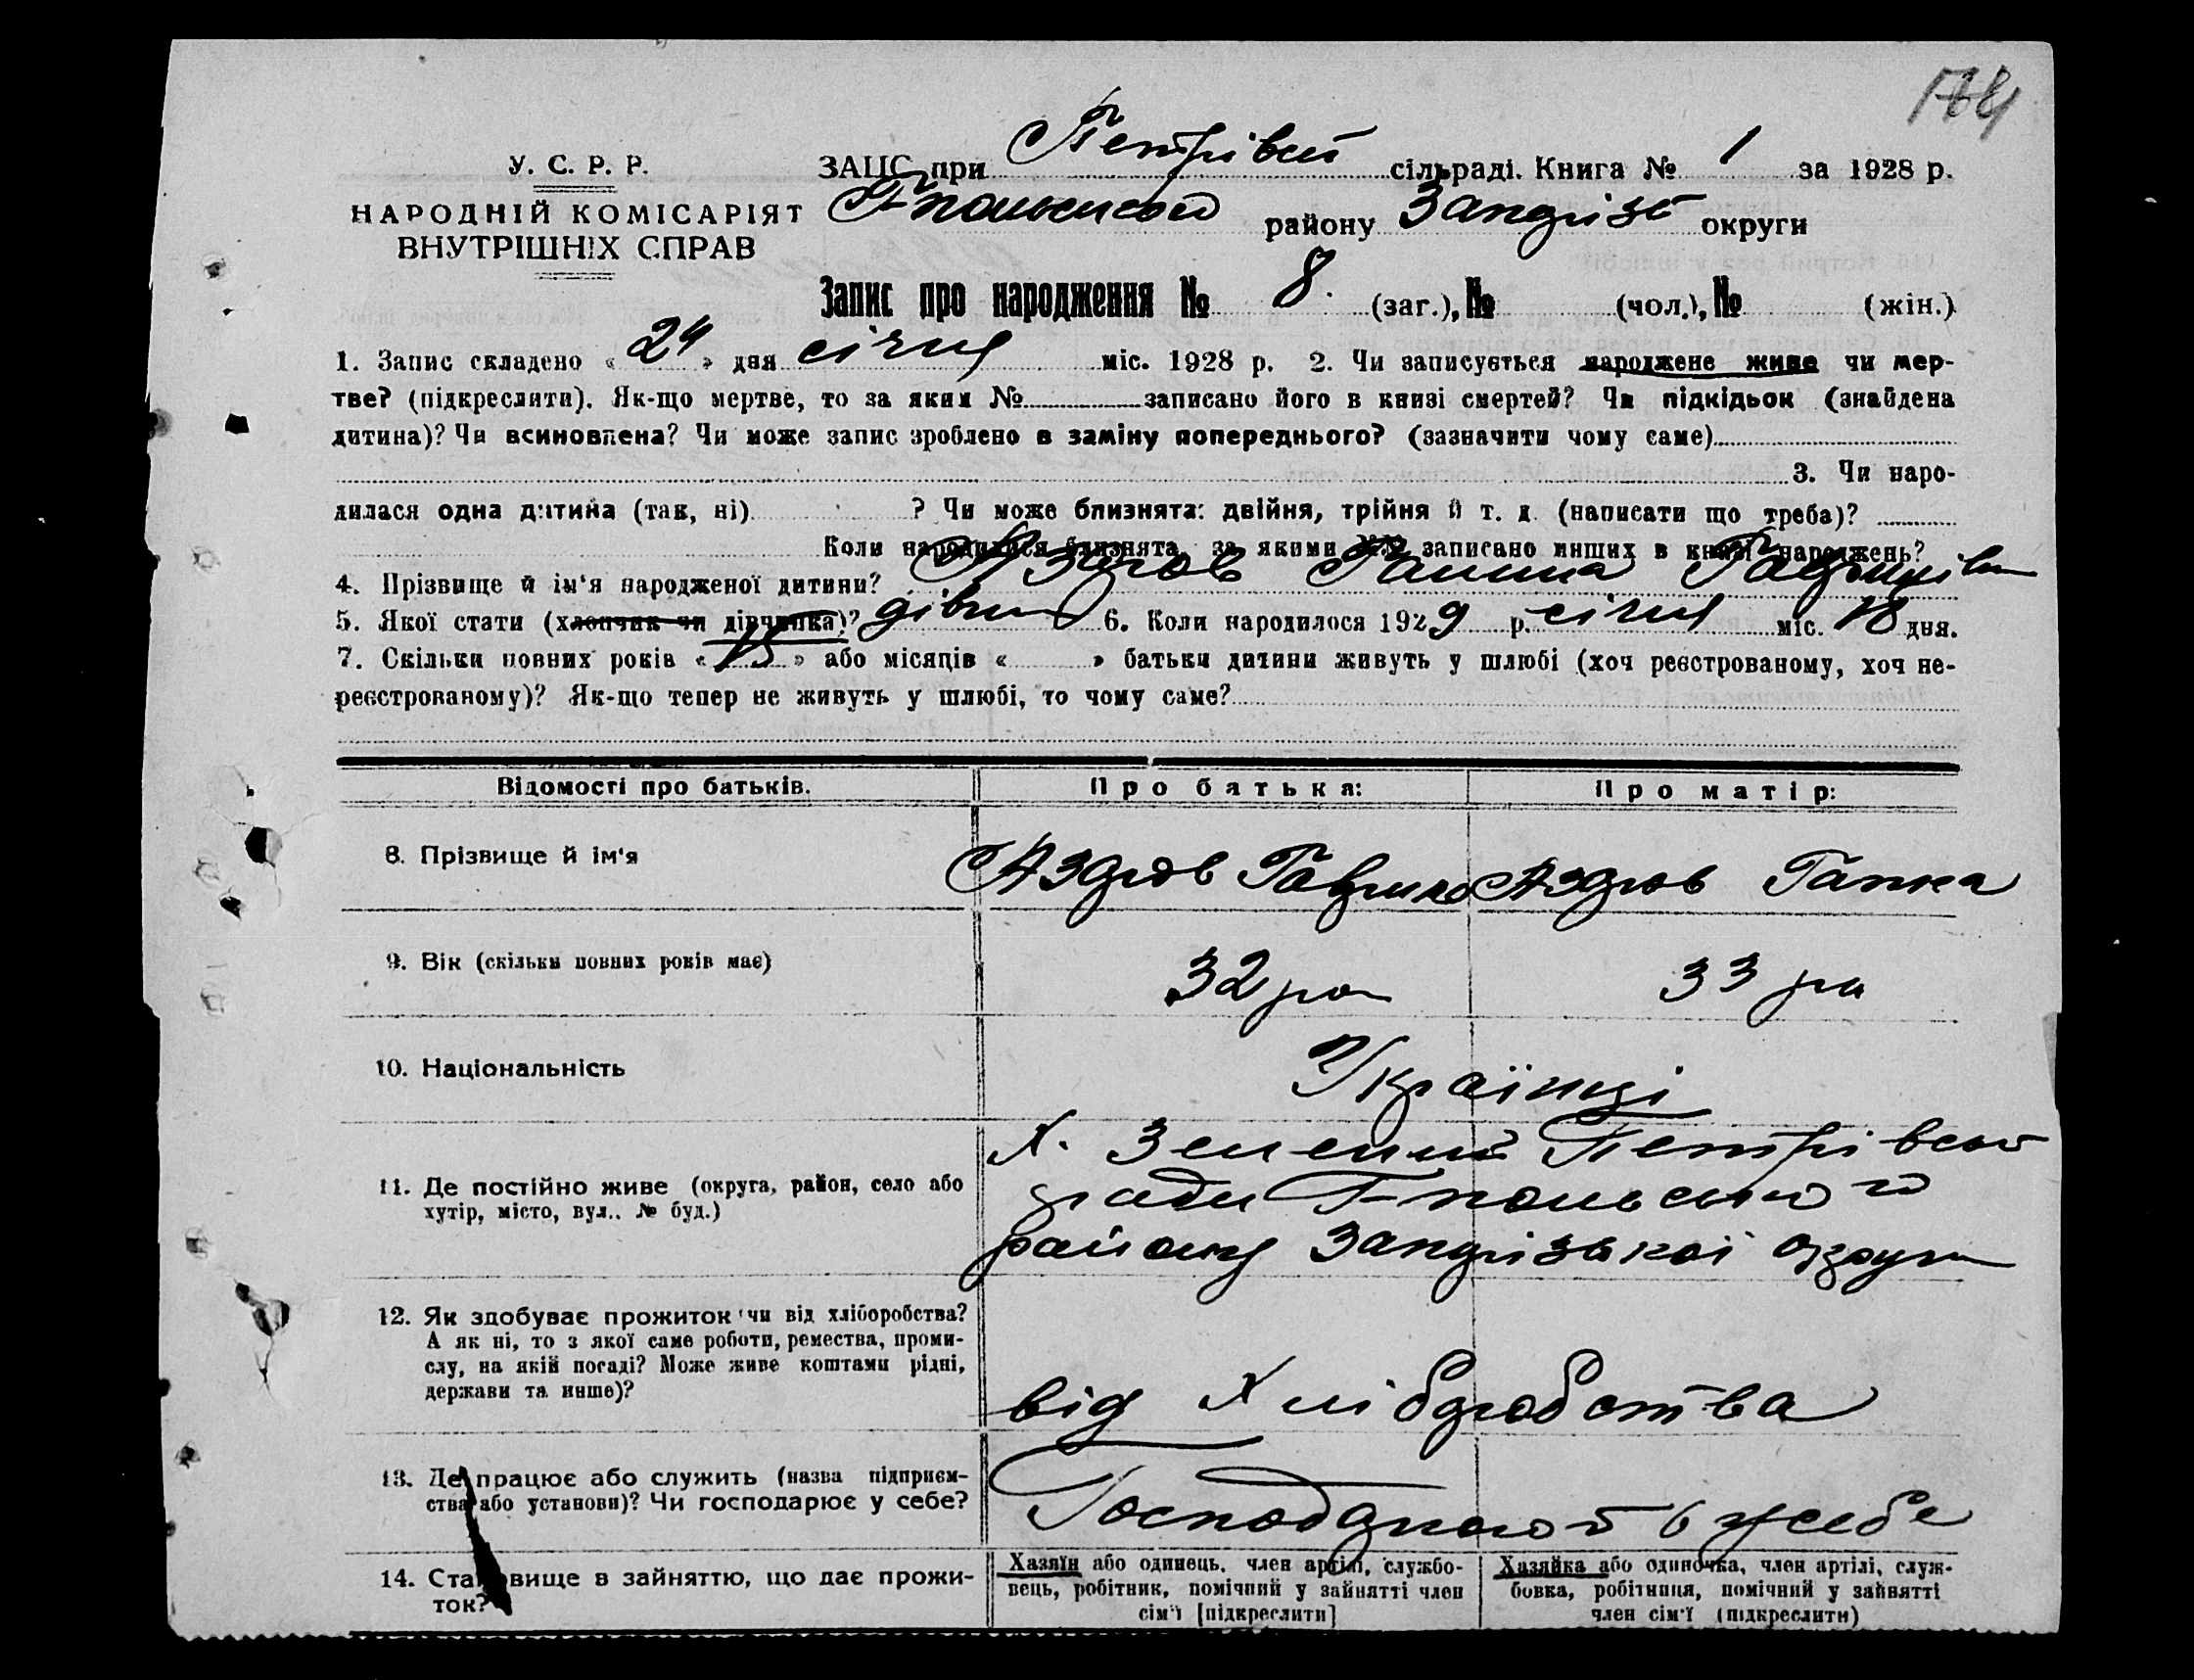 У. С. Р. Р.
НАРОДНІЙ КОМІСАРІЯТ
ВНУТРІШНІХ СПРАВ
ЗАЦС при Петрівсй сільраді. Книга № 1 за 1928 р.
району Запоріз округи
Запис про народження № 8. (заг.), № (чол.), № (жін.)
1. Запис складено « 24 » дня січня міс. 1928 р. 2. Чи записується народжене живе чи мер-
тве? (підкреслити). Як-що мертве, то за яким № записано його в книзі смертей? Чи підкідьок (знайдена
дитина)? Чи всиновлена? Чи може запис зроблено в заміну попереднього? (зазначити чому саме)
3. Чи наро-
дилася одна дитина (так, ні) ? Чи може близнята: двійня, трійня й т. д. (написати що треба)?
Коли народилися близнята, за якими №№ записано инших в книзі народжень?
4. Прізвище й ім'я народженої дитини? Ганна
5. Якої стати (хлопчик чи дівчинка)? 6. Коли народилося 1929 р. січня міс. 18 дня.
7. Скільки повних років « 15 » або місяців « » батьки дитини живуть у шлюбі (хоч реєстрованому, хоч не-
реєстрованому)? Як-що тепер не живуть у шлюбі, то чому саме?
Відомості про батьків. Про батька: Про матір:
8. Прізвище й ім'я Аздров Гаврило Аздров Гапка
9. Вік (скільки повних років має) 32 ро 33 ро
10. Національність Українці
11. Де постійно живе (округа, район, село або
хутір, місто, вул.. № буд.)
Х. Зелений Петрівсько
ради
району Запорізькой округи
12. Як здобуває прожиток (чи від хліборобства?
А як ні, то з якої саме роботи, ремества, проми-
слу, на якій посаді? Може живе коштами рідні,
держави та инше)?
від Хліборобства
13. Де працює або служить (назва підприєм-
ства або установи)? Чи господарює у себе?
Господарюють у себе
14. Становище в зайняттю, що дає прожи-
ток?
Хазяїн або одинець, член артілі, службо-
вець, робітник, помічний у зайнятті член
сім'ї [підкреслити]
Хазяйка або одиночка, член артілі, служ-
бовка, робітниця, помічний у зайнятті
член сім'ї (підкреслити)